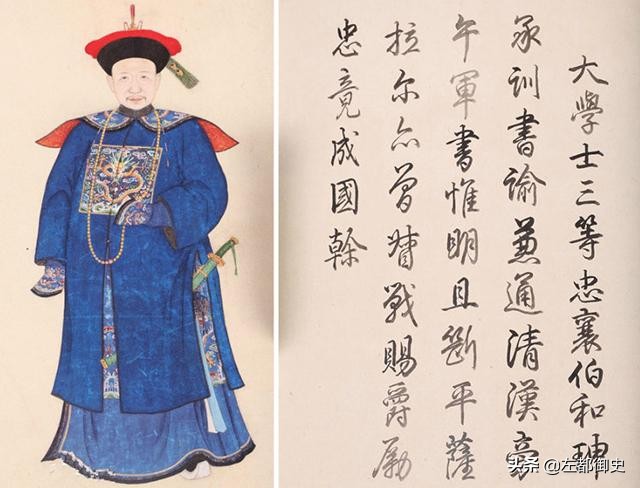 大學士三等忠襄伯和珅
承訓書諭兼通清漢旁
午軍書惟明且斷平薩
拉尔亦曾督戰賜爵勵
忠竟成國幹
头条 @左都御史